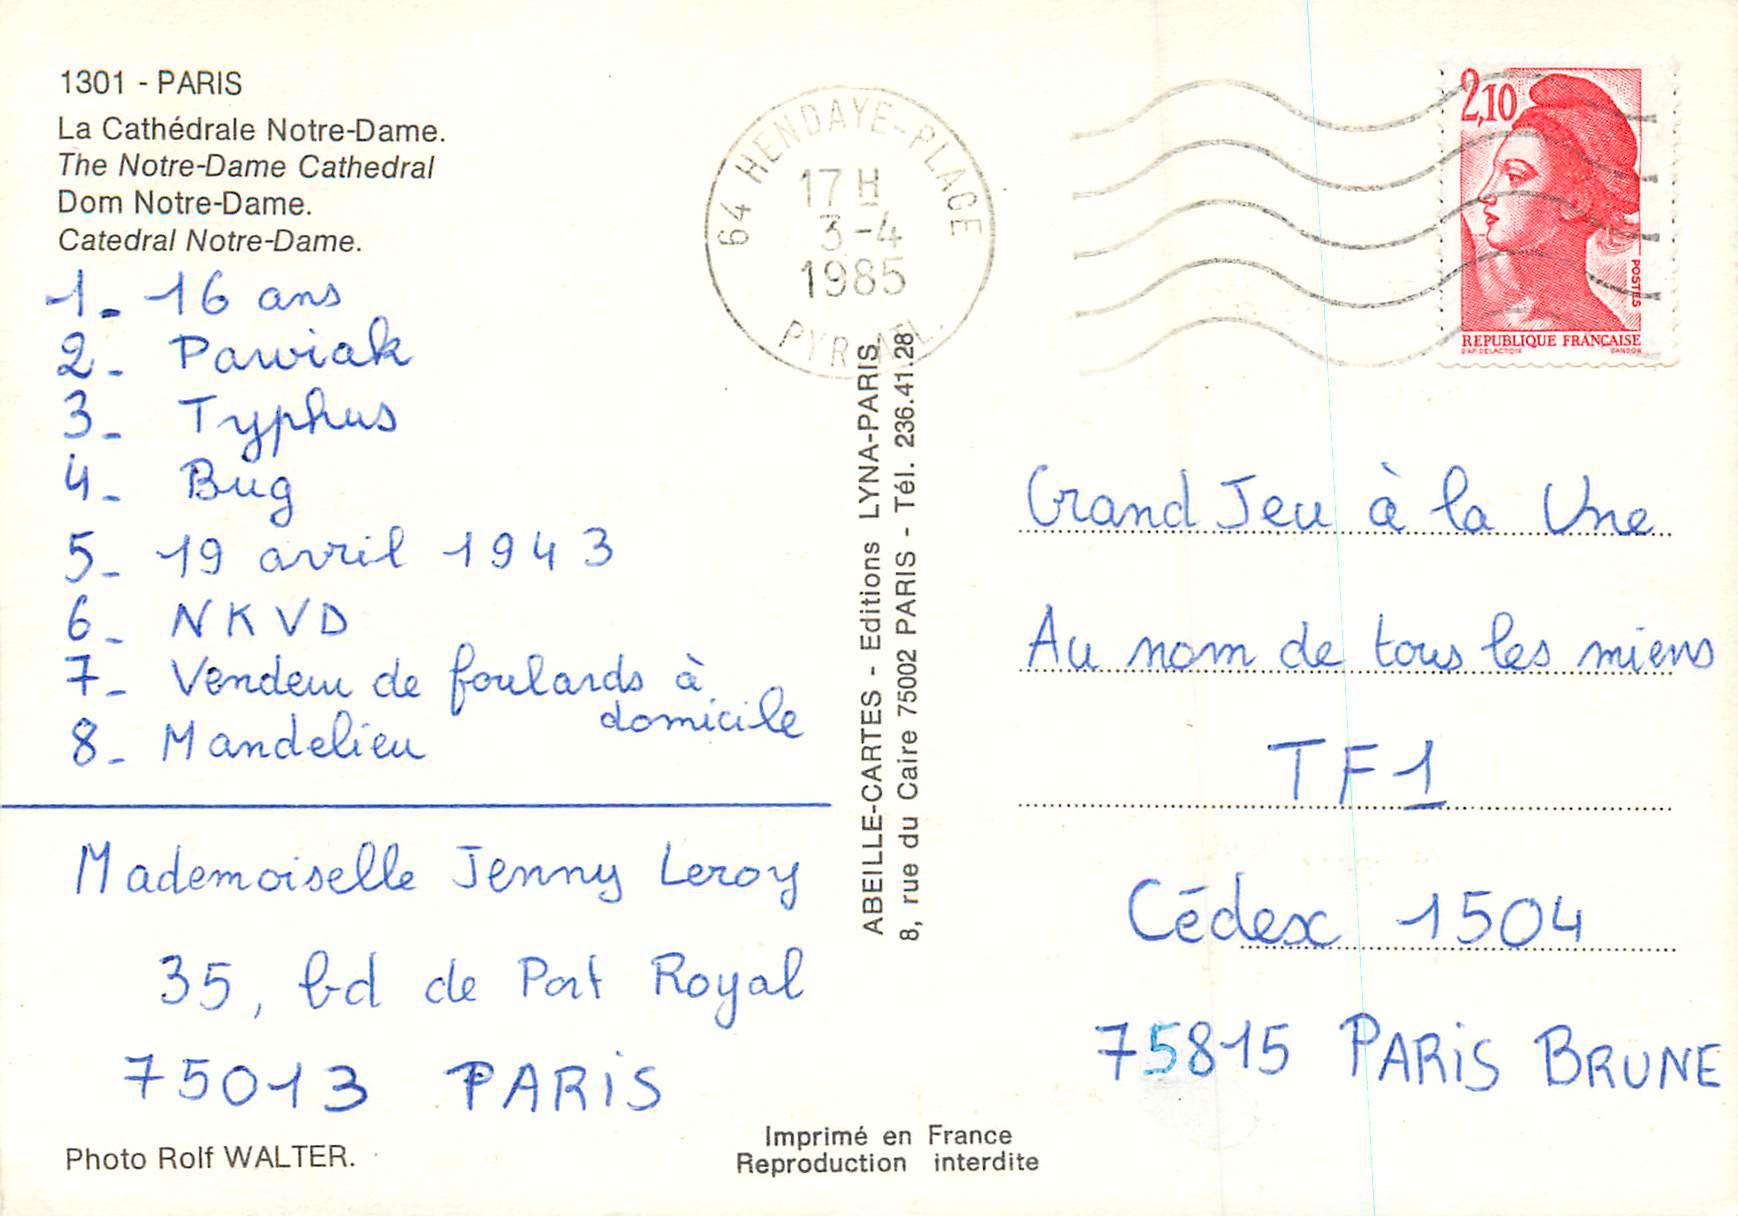 1301 - PARIS
La Cathédrale Notre-Dame.
The Notre-Dame Cathedral
Dom Notre-Dame.
Catedral Notre-Dame.
1- 16 ans
2- Pawiak
3- Typhus
4- Bug
5- 19 avril 1943
6- NKVD
7- Vendeur de foulards à
domicile
8- Mandelieu
Mademoiselle Jenny Leroy
35, bd de Port Royal
75013 PARIS
Photo Rolf WALTER.
64 HENDAYE-PLAGE
17 H
3-4
1985
PYR. ATL.
ABEILLE-CARTES - Editions LYNA-PARIS
8, rue du Caire 75002 PARIS - Tél. 236.41.28
Imprimé en France
Reproduction interdite
2,10
POSTES
REPUBLIQUE FRANÇAISE
D'AP. DELACROIX GANDON
Grand Jeu à la Une
Au nom de tous les miens
TF1
Cédex 1504
75815 PARIS BRUNE